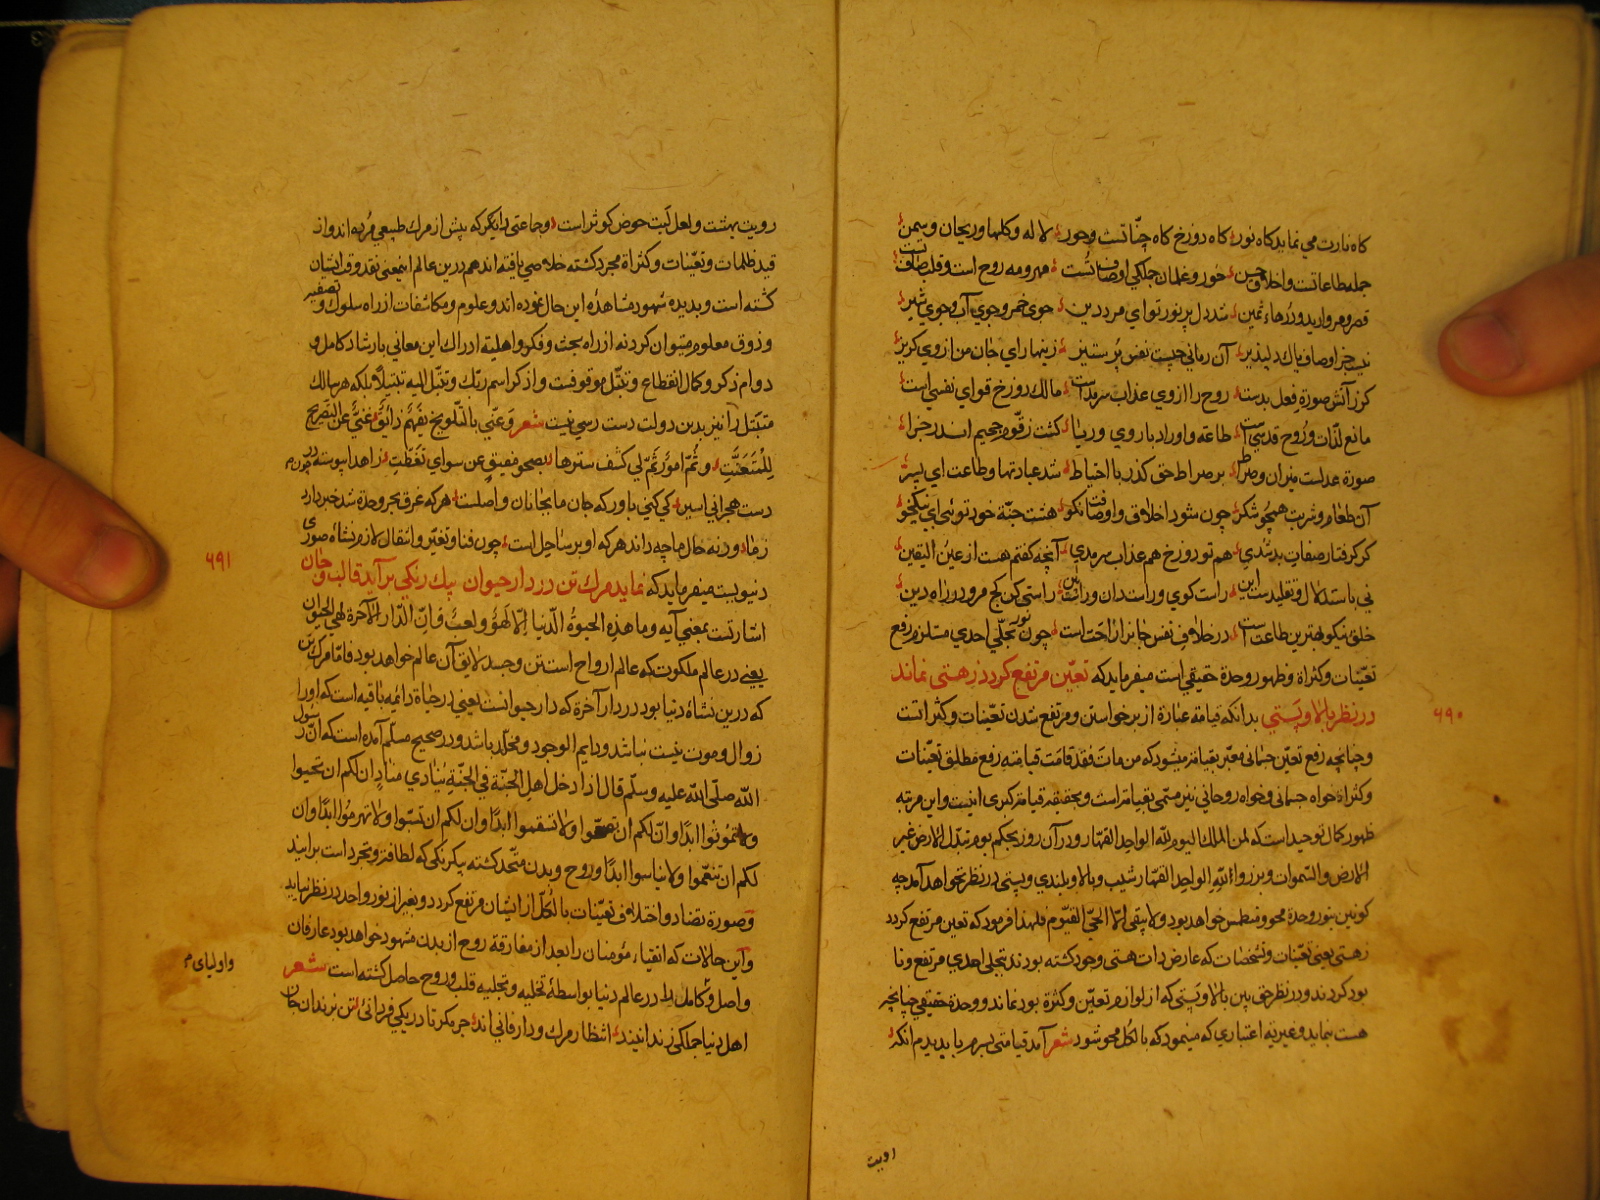 كاه نارت می نماید كاه نور كاه دوزخ كاه جنّاتست وحور لاله وكلها وریحان وسمن
جمله طاعاتست واخلاق حسن حور وغلمان جملكی اوصاف تست مهر ومه روح است وقلب صاف تست
قصر ومروارید ودرهاء ثمین شد دل پر نور تو ای مرد دین جوی خمر وجوی آب وجوی شیر
نیست جز اوصاف پاك دلپذیر آن زمانی چیست نفس پر ستیز زینهار ای جان من از وی كریز
كرز آتش صورة فعل بدست روح را از وی عذاب سرمدست مالك دوزخ قوای نفسی است
مانع لذّات وروح قدسی است طاعة واوراد با روی وریا كشت زقّوم جحیم اندر جزا
صورة عدلست میزان وصراط بر صراط حق كذر با احتیاط شد عبادتها وطاعت ای پسر
آن طعام وشربت همچو شكر چون شود اخلاق واوصافت نكو هشت جنّة خود توئی ای نیكخو
كر كرفتار صفات بد شدی هم تو دوزخ هم عذاب سرمدی آنچه كفتم هست از عین الیقین
نی باستدلال وتقلیدست این راست كوی وراست دان وراست بین راستی كن كج مرو در راه دین
خلق نیكو بهترین طاعت است در خلاف نفس جانرا راحت است چون نور تجلّی احدی مستلزم رفع
تعیّنات وكثراة وظهور وحدة حقیقی است میفرماید كه تعیّن مرتفع كردد ز هستی نماند
در نظر بالا وپستی بدانكه قیامة عبارة از برخواستن ومرتفع شدن تعیّنات وكثراتست
وچنانچه رفع تعیّن جسمانی معبّر بقیامتر میشود كه من مات فقد قامت قیامته رفع مطلق تعیّنات
وكثراة خواه جسمانی وخواه روحانی نیز مسمّی بقیامتر است وبحقیقة قیامتر كبری اینست واین مرتبه
ظهور كمال توحید است كه لمن الملك الیوم للّه الواحد القهّار ودر آن روز بحكم یوم تبدّل الارض غیر
الارض والسّموات وبرزوا للّه الواحد القهّار نشیب وبالا وبلندی وپستی در نظر نخواهد آمد چه
كونین بنور وحدة محو ومنطمس خواهد بود ولا یبقی الّا الحیّ القیّوم فلهذا فرمود كه تعیّن مرتفع كردد
ز هستی یعنی تعیّنات وتشخّصات كه عارض ذات هستی وجود كشته بودند بتجلی احدی مرتفع وفنا
بود كردند ودر نظر حق بین بالا وپستی كه از لوازم تعیّن وكثرة بود نماند ووحدة حقیقی چنانچه
هست بنماید وغیریة اعتباری كه مینمود كه بالكل محو شود شعر آمد قیامتی بسرم تا بدیدم انكه
۶۹۰
اوبیت
رویت بهشت ولعل لبت حوض كوثر است وجماعتی دایكر كه پیش از مرك طبیعی مرده اند واز
قید ظلمات وتعیّنات وكثراة مجرد كشته خلاصی یافته اند هم درین عالم اینمعنی نقد وقت ایشان
كشته است وبدیده شهود مشاهده این حال نموده اند وعلوم ومكاشفات از راه سلوك وتصفیه
وذوق معلوم میتوان كرد نه از راه بحث وفكر واهلیة ادراك این معانی بارشاد كامل و
دوام ذكر وكمال انقطاع وتبتّل موقوفست واذكر اسم ربّك وتبتّل الیه تبتیلاً بلكه هر سالك
متبتّل را نیز بدین دولت دست رسی نیست شعر وعنّی بالتّلویح یفهم ذائق غنیّ عن التّصریح
للمتعنّت وثمّ امور ثمّ لی كشف سترها بصحو مفیق عن سوای تغطّت زاهدا پیوسته در
دست هجرانی اسیر كی كنی باور كه جان ما بجانان واصلست هر كه غرق بحر وحدة شد خبر دارد
ز ما ور نه حال ما چه داند هر كه او بر ساحل است چون فنا وتغیّر وانتقال لازم نشاة صوری
دنیویست میفرماید كه نماید مرك تن در دار حیوان بیك رنكی برآید قالب وجان
اشارتست بمعنی آیه وما هذه الحیوة الدّنیا الّا لهو ولعب وانّ الدّار الآخرة لهی الحیوان
یعنی در عالم ملكوت كه عالم ارواح است تن وجسد لایق آن عالم خواهد بود فامّا مرك تن
كه درین نشاة دنیا بود در دار آخرة كه دار حیوانست یعنی در حیاة دائمه باقیه است كه او را
زوال وموت نیست نباشد ودایم الوجود ومخلّد باشد ودر صحیح مسلّم آمده است كه انّ رسول
اللّه صلّی اللّه علیه وسلّم قال اذا دخل اهل الجنّة فی الجنّة ینادی مناد ان لكم ان تحیوا
ولا تموتوا ابدًا وانّ لكم ان تصحّوا ولا تسقموا ابدًا وان لكم ان تشبّوا ولا تهرموا ابدًا وان
لكم ان تنعّموا ولا تباسوا ابدًا وروح وبدن متّحد كشته بیكرنكی كه لطافة وتجرد است برآیند
وصورة تضاد واختلاف تعیّنات بالكل از ایشان مرتفع كردد وبغیر از نور واحد در نظر نیاید
واین حالات كه اتقیاء مؤمنان را بعد از مفارقة روح از بدن مشهود خواهد بود عارفان
واصل وكامل را در عالم دنیا بواسطة تخلیه وتجلیه قلب وروح حاصل كشته است شعر
اهل دنیا جملكی زندانیند انتظار مرك ودار فانی اند جز مكر نادر یكی فردانئ تن بزندان جان
۶۹۱
واولیای م